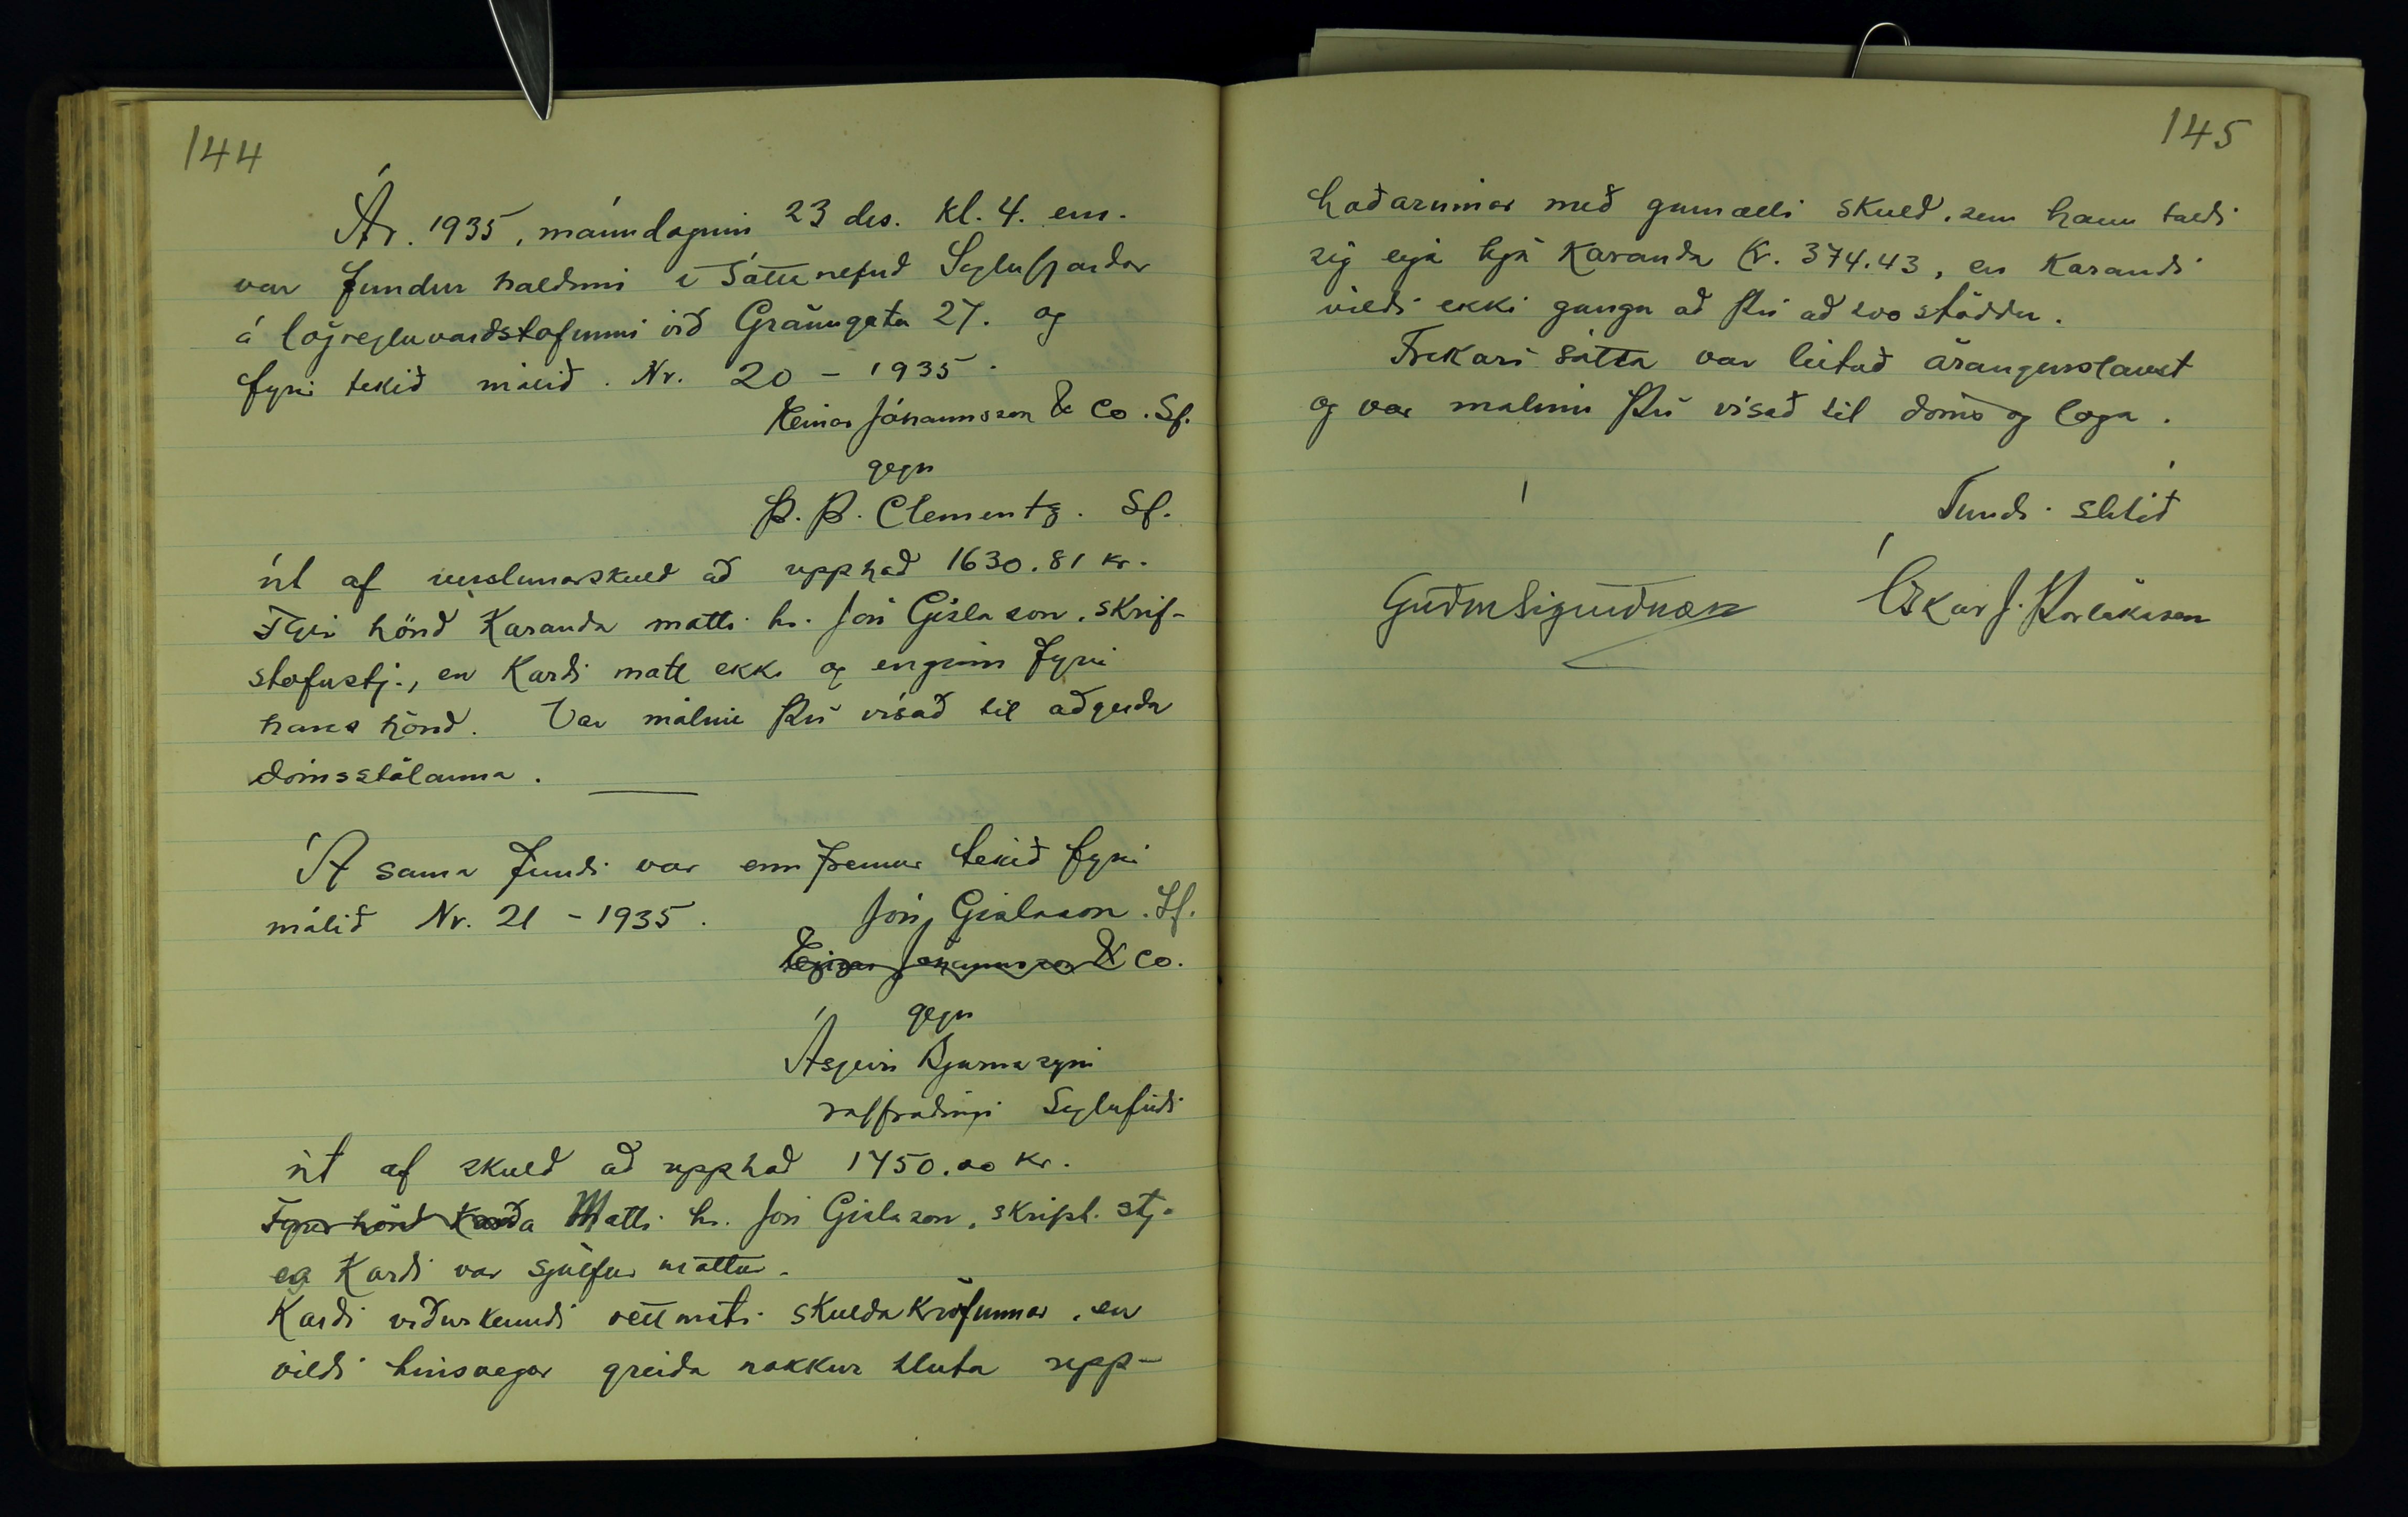 144
Ár. 1935, mánudaginn 23 des. kl. 4. em.
var fundur haldinn í Sáttanefnd Siglufjarðar
á lögregluvarðstofunni við Gránugötu 27. og
fyrir tekið málið. Nr. 20 - 1935.
Einar Jóhannsson & Co. Sf.
gegn
Þ. Þ. Clementz. Sf.
út af verslunarskuld að upphæð 1630.81 kr.
Fyrir hönd Kæranda mætti hr. Jón Gíslason, skrif-
stofustj., en Kærði mætt ekki og enginn fyrir
hans hönd. Var málinu því vísað til aðgerða
dómsstólanna.
Á sama fundi var ennfremur tekið fyrir
málið Nr. 21 - 1935.
Jón Gíslason. Sf.
Einar Jóhannsson & Co.
gegn
Ásgeiri Bjarnasyni
raffræðingi Siglufirði
út af skuld að upphæð 1750.00 kr.
Fyrir hönd Kæranda Mætti hr. Jón Gíslason, skrifst. stj.
og Kærði var sjálfur mættur.
Kærði viðurkenndi réttmæti skuldakröfunnar, en
vildi hinsvegar greiða nokkurn hluta upp-
145
hæðarinnar með gumælli skuld, sem hann taldi
sig eiga hjá Kæranda kr. 374.43, en Kærandi
vildi ekki ganga að því að svo stöddu.
Frekari sátta var leitað árangurslaust
og var málinu því vísað til dóms og laga.
Fundi slitið
Guðm Sigurðsson Óskar J. Þorláksson